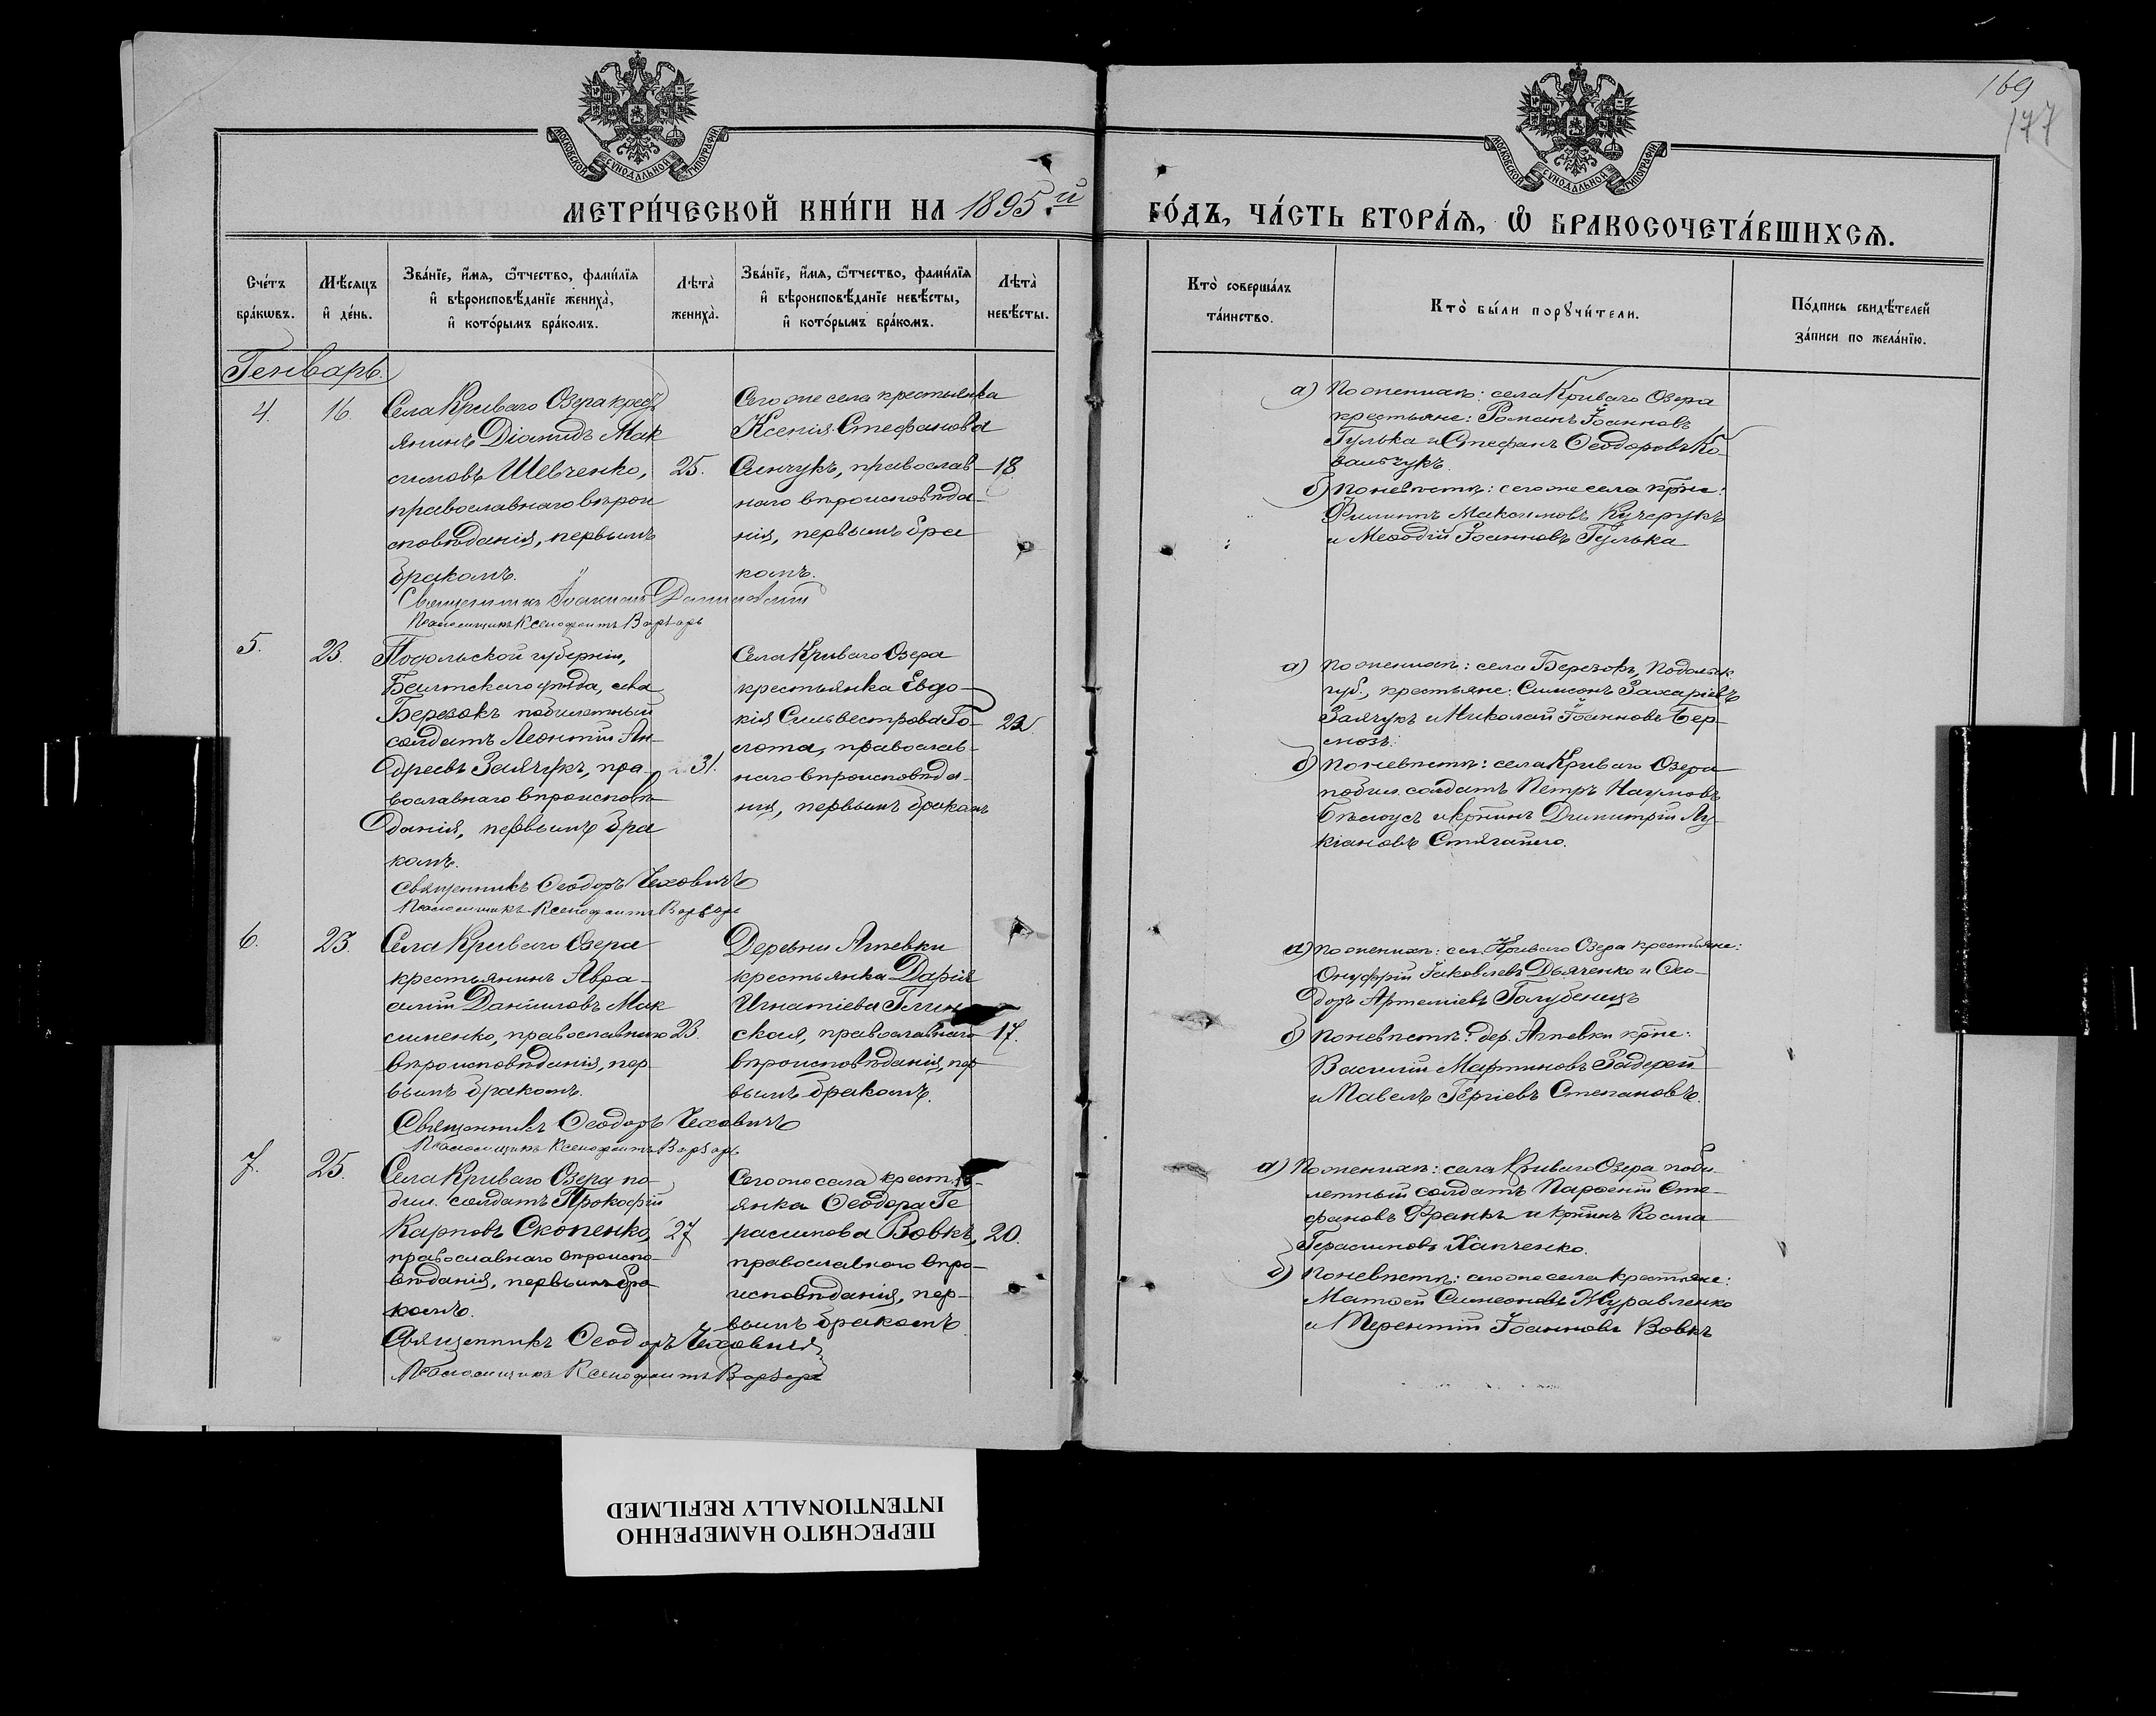 169
177
МОСКОВСКОЙ СУНОДАЛЬНОЙ ТИПОГРАФІИ
МОСКОВСКОЙ СУНОДАЛЬНОЙ ТИПОГРАФІИ
МЕТРИ́ЧЕСКОЙ КНИ́ГИ НА 1895.й
ГО́ДЪ, ЧА́СТЬ ВТОРА́Я, Ѡ БРАКОСОЧЕТА́ВШИХСЯ.
Сче́тъ
бра́кѡвъ.
Мѣ́сяцъ
и҆ де́нь.
Зва́нїе, и҆́мя, ѻ҆́тчество, фами́лїя
и҆ вѣроисповѣ́данїе жениха̀,
и҆ кото́рымъ бра́комъ.
Лѣта̀
жениха̀.
Зва́нїе, и҆́мя, ѻ҆́тчество, фами́лїя
и҆ вѣроисповѣ́данїе невѣ́сты,
и҆ кото́рымъ бра́комъ.
Лѣта̀
невѣ́сты.
Кто̀ соверша́лъ
та́инство.
Кто̀ бы́ли порꙋчи́тели.
По́дпись свидѣ́телей
за́писи по жела́нїю.
Генварь.
4.
16.
Села Криваго Озера крест
янинъ Діомидъ Мак
симовъ Шевченко,
православнаго вѣрои
сповѣданія, первымъ
бракомъ.
25.
Сего же села крестьянка
Ксенія Стефанова
Синчукъ, православ-
наго вѣроисповѣда-
нія, первымъ бра
комъ.
18.
Священникъ Іоакимъ
Псаломщикъ Ксенофонтъ Варварь
а) По женихѣ: села Криваго Озера
крестьяне: Романъ Іоанновъ
Гулька и Стефанъ Ѳеодоровъ Ко-
вальчукъ.
б) По невѣстѣ: сего же села кр̃не:
Филиппъ Максимовъ Кучерукъ
и Меѳодій Іоанновъ Гулька
5.
23.
Подольской губерніи,
Балтскаго уѣзда, села
Березокъ побилетный
солдатъ Леонтій Ан-
дреевъ Заячукъ, пра-
вославнаго вѣроисповѣ
данія, первымъ бра
комъ.
31.
Села Криваго Озера
крестьянка Евдо-
кія Сильвестрова Го-
лота, православ-
наго вѣроисповѣда-
нія, первымъ бракомъ
Священникъ Ѳеодоръ Чеховичъ
Псаломщикъ Ксенофонтъ Варварь
а) По женихѣ: села Березокъ, Подольск.
губ., крестьяне: Симеонъ Захаріевъ
Заячукъ и Николай Іоанновъ Бер-
б) По невѣстѣ: села Криваго Озера
побил. солдатъ Петръ Наумовъ
Бѣлоусъ и кр̃нинъ Димитрій Лу-
кіановъ
6.
23.
Села Криваго Озера
крестьянинъ Авра-
амій Даніиловъ Мак
сименко, православнаго
вѣроисповѣданія, пер-
вымъ бракомъ.
23.
Деревни Агѣевки
крестьянка Дарія
Игнатіева Глин
ская, православнаго
вѣроисповѣданія, пер
вымъ бракомъ.
17.
Священникъ Ѳеодоръ Чеховичъ
Псаломщикъ Ксенофонтъ Варварь
а) По женихѣ: сел. Криваго Озера крестьяне:
Онуфрій Іаковлевъ Дьяченко и Ѳео-
доръ Артеміевъ Голубенцъ
б) По невѣстѣ: дер. Агѣевки кр̃не:
Василій Мартиновъ Задерей
и Павелъ Гергіевъ Степановъ.
7.
25.
Села Криваго Озера по-
бил. солдатъ Прокофій
Карповъ Скопенко,
православнаго вѣроиспо-
вѣданія, первымъ бра
комъ.
27
Сего же села крест
янка Ѳеодора Ге
расимова Вовкъ,
православнаго вѣро-
исповѣданія, пер-
вымъ бракомъ.
20.
Священникъ Ѳеодоръ Чеховичъ
Псаломщикъ Ксенофонтъ Варварь
а) По женихѣ: села Криваго Озера поби-
летный солдатъ Парѳеній Сте-
фановъ Франкъ и кр̃нинъ Косма
Герасимовъ Хапченко.
б) По невѣстѣ: сего же села крестьяне:
Матѳей Симеоновъ Журавленко
и Терентій Іоанновъ Вовкъ
ПЕРЕСНЯТО НАМЕРЕННО
INTENTIONALLY REFILMED